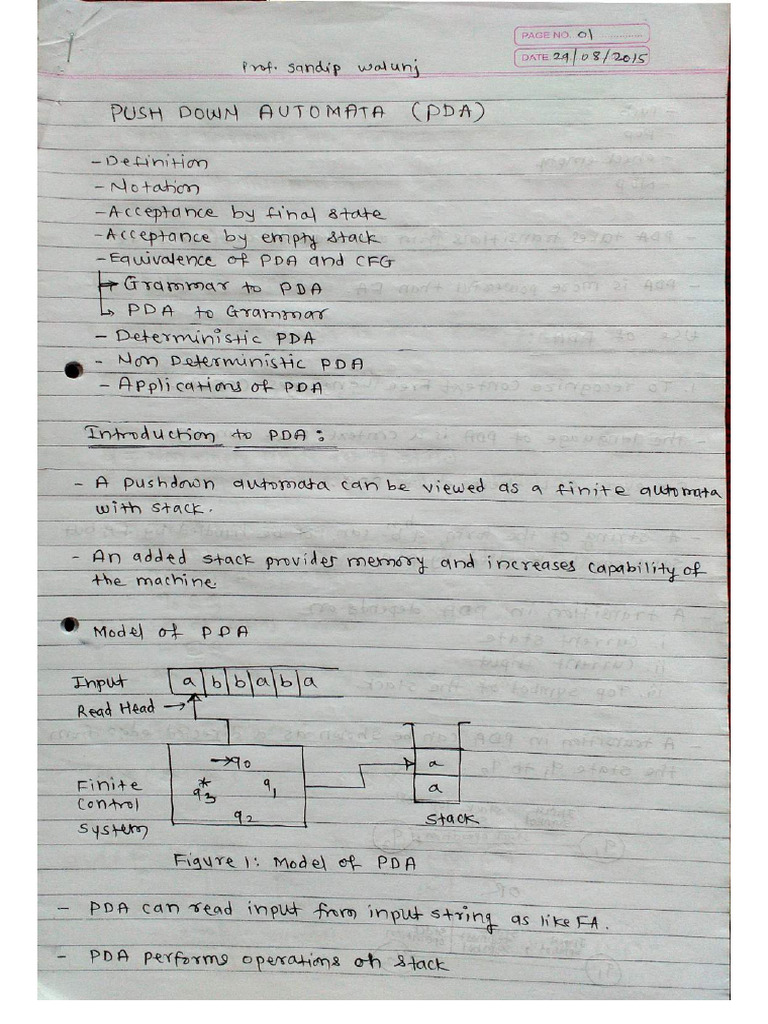 PAGE NO. 01
DATE 29/08/2015
Prof. Sandip Walunj
PUSH DOWN AUTOMATA (PDA)
- Definition
- Notation
- Acceptance by final state
- Acceptance by empty stack
- Equivalence of PDA and CFG
→ Grammar to PDA
↳ PDA to Grammar
- Deterministic PDA
- Non Deterministic PDA
- Applications of PDA
Introduction to PDA :
- A pushdown automata can be viewed as a finite automata
with stack.
- An added stack provides memory and increases capability of
the machine.
Model of PDA
Input a b b a b a
Read Head →
→q0
* q3 q1
q2
Finite
Control
System
a
a
Stack
Figure 1: Model of PDA
- PDA can read input from input string as like FA.
- PDA performs operations on stack